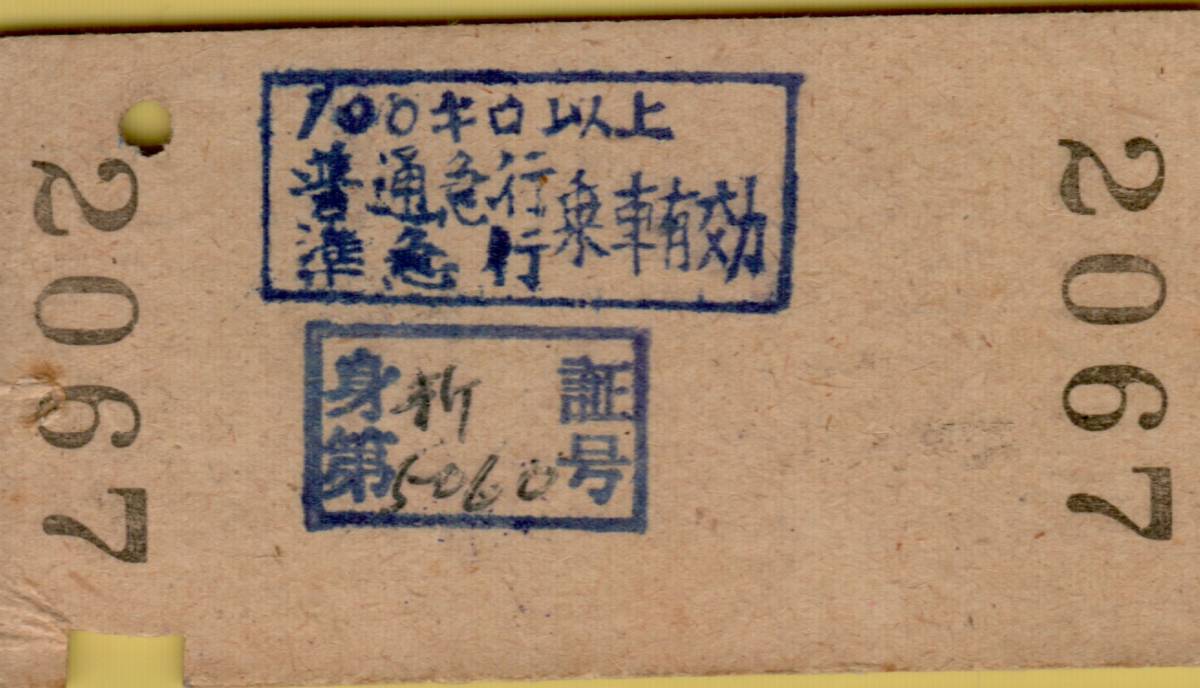 2067
100キロ以上
普通急行
準急行
乗車有効
身 証
第5060号
2067